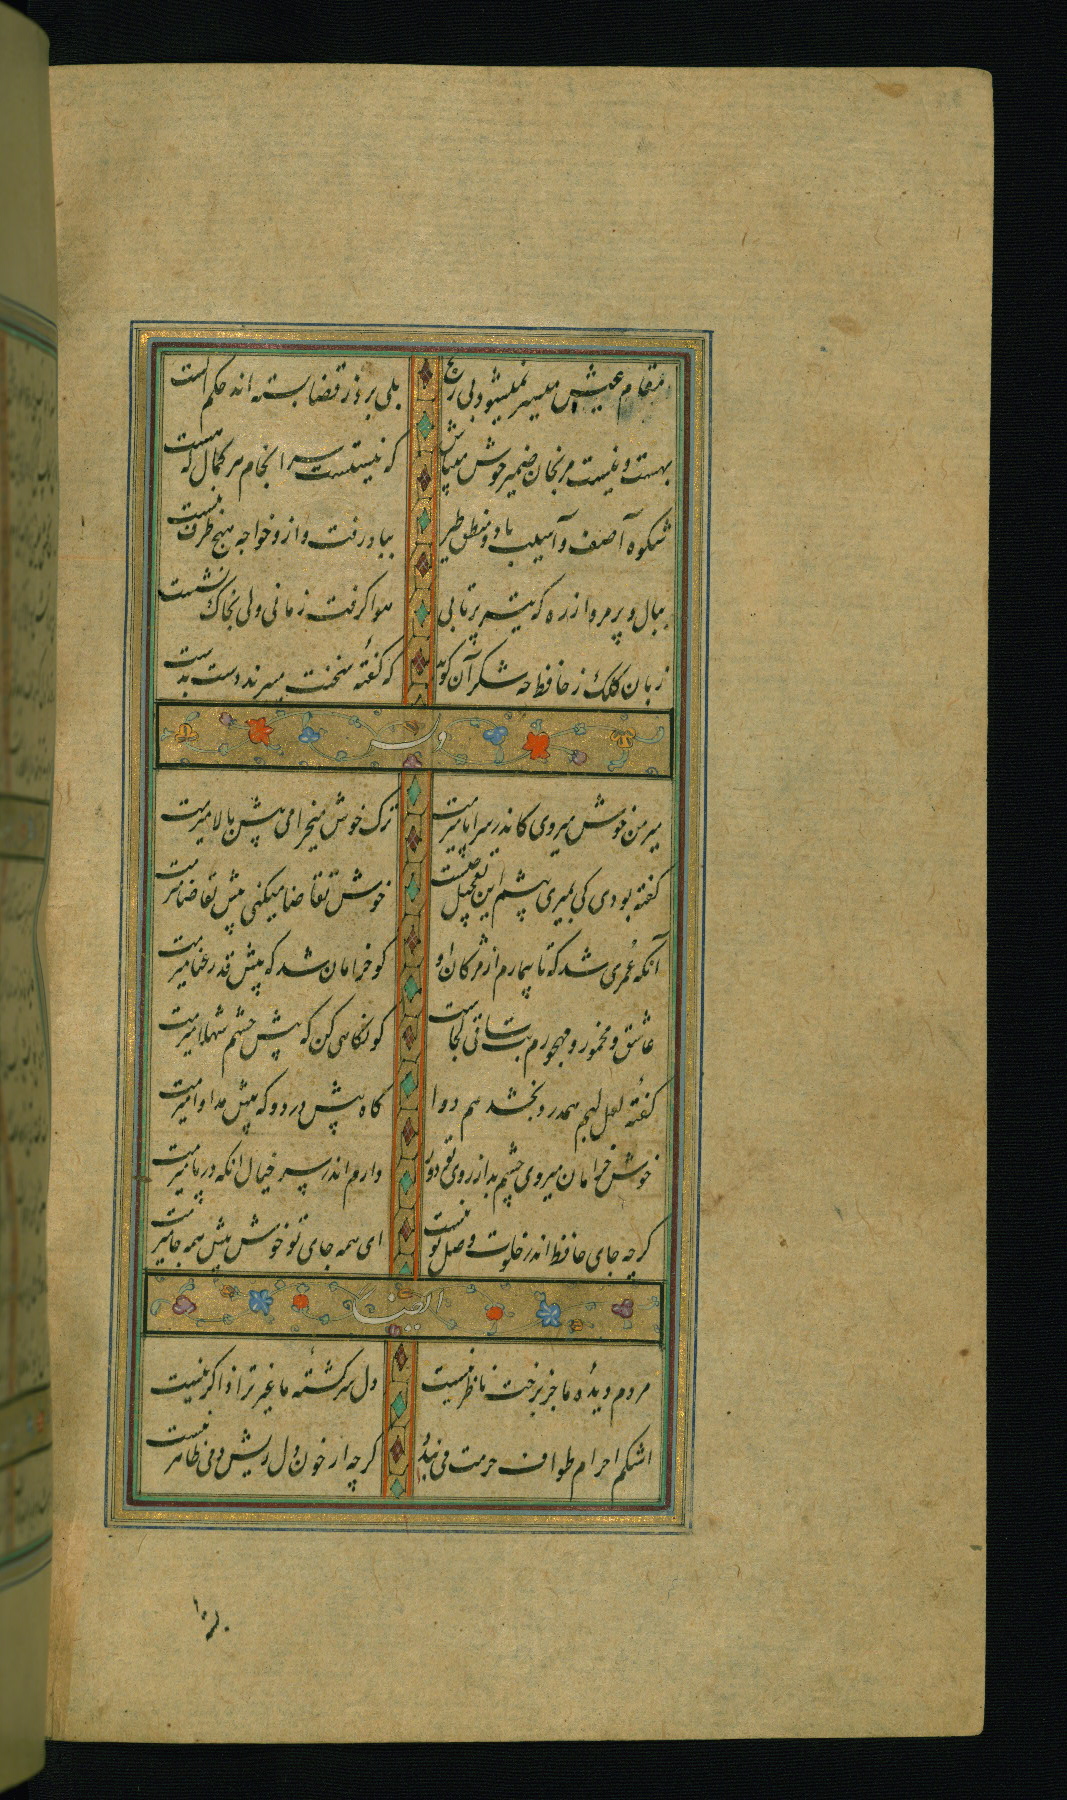 مقام عیش میسر نمیشود بی رنج بلی بروز قضا بسته اند حکم الست
بهست و نیست مرنجان ضمیر خوش میباش که نیستیست سرانجام هر کمال که هست
شکوه آصف و آسیب باد و منطق طیر بباد رفت و ازو خواجه هیچ طرف نبست
ببال و پر مرو از ره که تیر پرتابی هوا کرفت زمانی ولی بخاک نشست
زبان کلک ز حافظ چه شکر آن کوید که کفتهٔ سخنت میبرند دست بدست
وله
میر من خوش میروی کاندر سراپا میرمت ترک خوش میخرامی پیش بالا میرمت
کفته بودی کی بمیری پیشم این تعجیل چیست خوش تقاضا میکنی پیش تقاضا میرمت
آنکه عمری شد که تا بیمارم از مژکان او کو خرامان شد که پیش قد رعنا میرمت
عاشق و مخمور و مهجورم بت ساقی کجاست کو نکاهی کن که پیش چشم شهلا میرمت
کفتهٔ لعل لبم هم درد بخشد هم دوا کاه پیش درد و که پیش مداوا میرمت
خوش خرامان میروی چشم بد از روی تو دور دارم اندر سر خیال انکه در پا میرمت
کرچه جای حافظ اندر خلوت وصل تو نیست ای همه جای تو خوش پیش همه جا میرمت
ایضا
مردم دیدهٔ ما جز برخت ناظر نیست دل سرکشتهٔ ما غیر ترا ذاکر نیست
اشکم احرام طواف حرمت می بندد کرچه از خون دل ریش دمی طاهر نیست